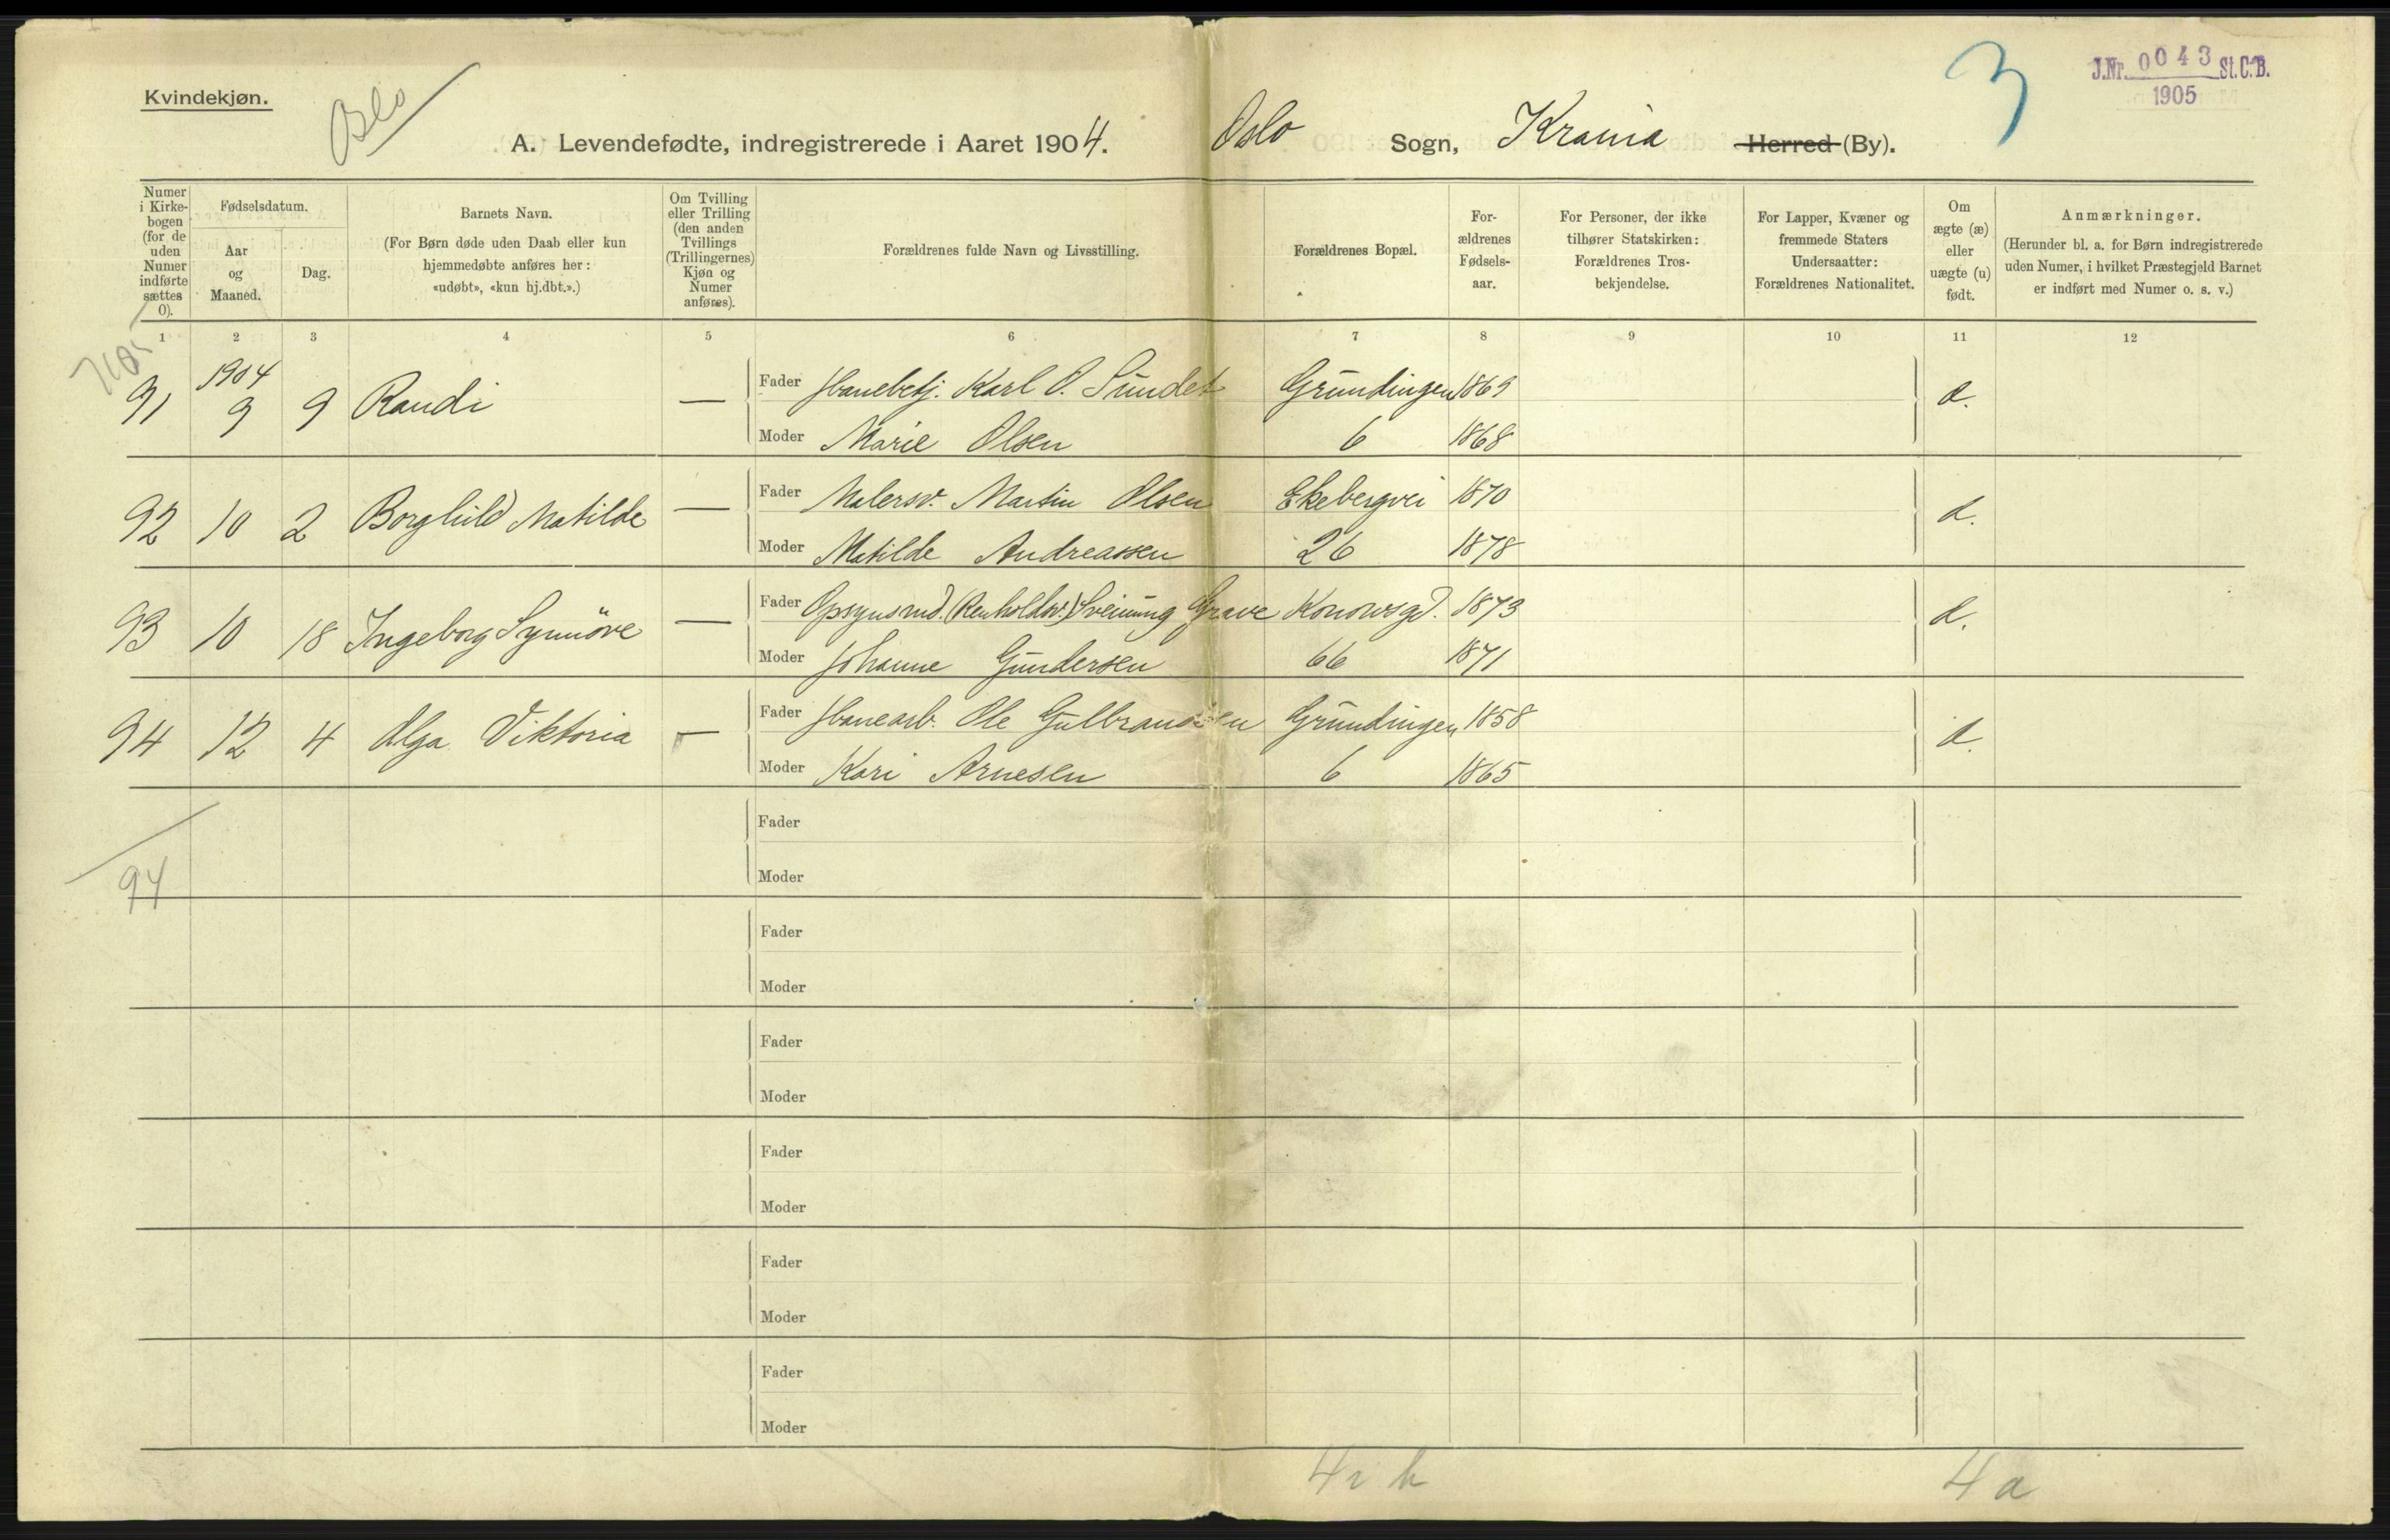 J.Nr. 0043 St.C.B.
1905
3
Kvindekjøn.
Oslo
A. Levendefødte, indregistrerede i Aaret 1904. Oslo Sogn, Krania Herred (By).
Numer i Kirkebogen (for de uden Numer indførte sættes 0).
Fødselsdatum.
Aar og Maaned.
Dag.
Barnets Navn.
(For Børn døde uden Daab eller kun hjemmedøbte anføres her: «udøbt», «kun hj.dbt.».)
Om Tvilling eller Trilling (den anden Tvillings (Trillingernes) Kjøn og Numer anføres).
Forældrenes fulde Navn og Livsstilling.
Forældrenes Bopæl.
Forældrenes Fødselsaar.
For Personer, der ikke tilhører Statskirken: Forældrenes Trosbekjendelse.
For Lapper, Kvæner og fremmede Staters Undersaatter: Forældrenes Nationalitet.
Om ægte (æ) eller uægte (u) født.
Anmærkninger.
(Herunder bl. a. for Børn indregistrerede uden Numer, i hvilket Præstegjeld Barnet er indført med Numer o. s. v.)
1 2 3 4 5 6 7 8 9 10 11 12
1904
91 9 9 Randi — Fader Jbanebetj. Karl O. Sundet Grundingen 1869 æ.
Moder Marie Olsen 6 1868
92 10 2 Borghild Matilde — Fader Malersv. Martin Olsen Ekebergvei 1870 æ.
Moder Matilde Andreassen 26 1878
93 10 18 Ingeborg Synnöve — Fader Opsynsmd. (Renholdsv.) Sveinung Grave Konowsgd. 1873 æ.
Moder Johanne Gundersen 66 1871
94 12 4 Olga Viktoria — Fader Jbanearb. Ole Gulbrandsen Grundingen 1858 æ.
Moder Kari Arnesen 6 1865
Fader
Moder
94
Fader
Moder
Fader
Moder
Fader
Moder
Fader
Moder
Fader
Moder
4 a